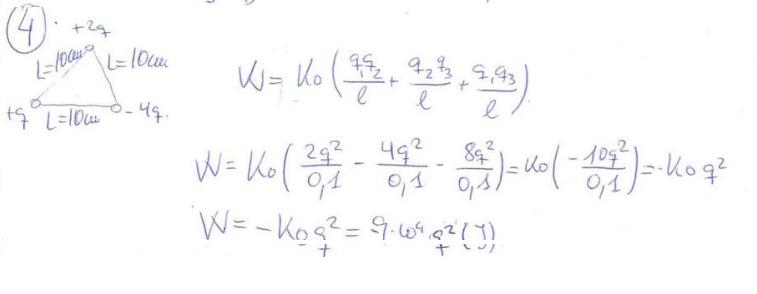 4.
+2q
L=10cm L=10cm
+q L=10cm -4q.
W = K₀ (q₁q₂/l + q₂q₃/l + q₁q₃/l)
W = K₀ (2q²/0,1 - 4q²/0,1 - 8q²/0,1) = K₀ (-10q²/0,1) = -K₀q²
W = -K₀q² = 9·10⁹·q² (J)